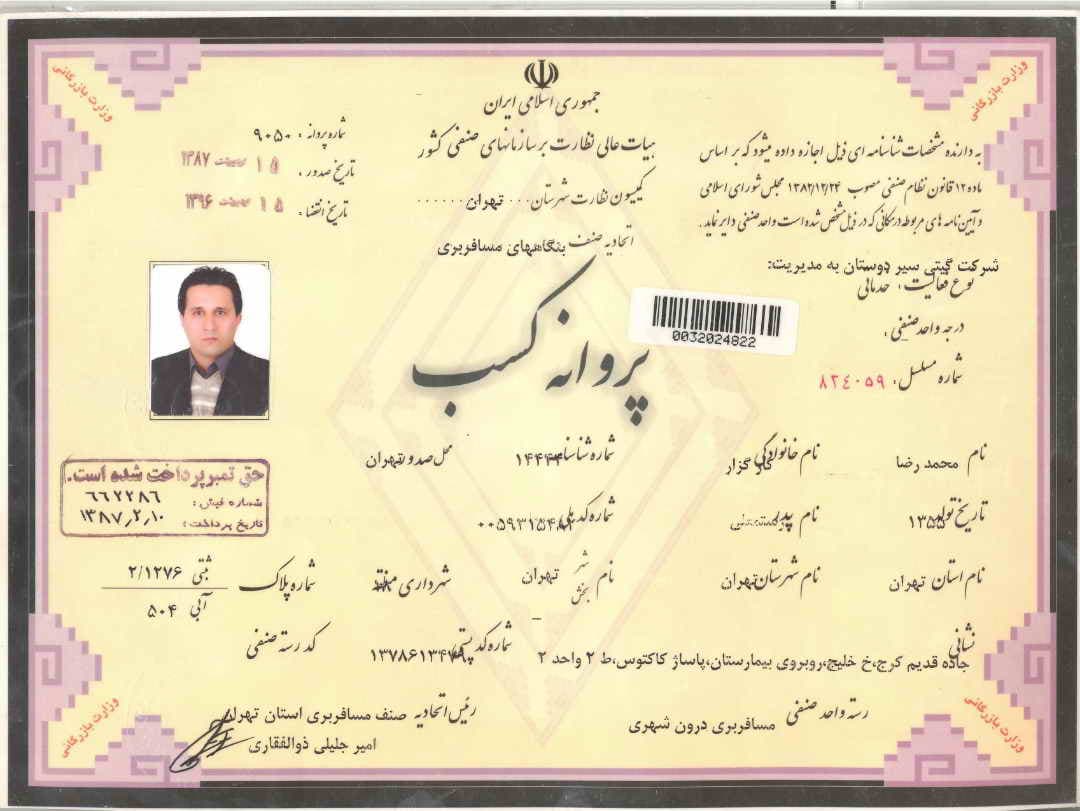 وزارت بازرگانی
وزارت بازرگانی
جمهوری اسلامی ایران
هیات عالی نظارت بر سازمانهای صنفی کشور
کمیسیون نظارت شهرستان ... تهران ......
اتحادیه صنف بنگاههای مسافربری
شماره پروانه : ۹۰۵۰
تاریخ صدور : ۱۵ ۱۳۸۷
تاریخ انقضاء : ۱۵ ۱۳۹۶
به دارنده مشخصات شناسنامه ای ذیل اجازه داده میشود که بر اساس
ماده ۱۲ قانون نظام صنفی مصوب ۱۳۸۲/۱۲/۲۴ مجلس شورای اسلامی
و آیین نامه های مربوطه در مکانی که در ذیل مشخص شده است واحد صنفی دایر نماید .
شرکت گیتی سیر دوستان به مدیریت:
نوع فعالیت : خدماتی
درجه واحد صنفی :
شماره مسلسل : ۸۲۴۰۵۹
0032024822
پروانه کسب
نام محمد رضا نام خانوادگی کارگزار شماره شناسنامه ۱۴۴۴۴ محل صدور تهران
حق تمبر پرداخت شده است.
شماره فیش : ۶۶۲۲۸۶
تاریخ پرداخت : ۱۳۸۷٫۲٫۱۰
تاریخ تولد ۱۳۵۵ نام پدر شماره کد ملی
نام استان تهران نام شهرستان تهران نام شهر بخش تهران شهرداری منطقه شماره پلاک ثبتی ۲/۱۲۷۶
آبی ۵۰۴
نشانی جاده قدیم کرج،خ خلیج،روبروی بیمارستان،پاساژ کاکتوس،ط ۲ واحد ۲ شماره کد پستی کد رسته صنفی
رسته واحد صنفی مسافربری درون شهری
رئیس اتحادیه صنف مسافربری استان تهران
امیر جلیلی ذوالفقاری
وزارت بازرگانی
وزارت بازرگانی